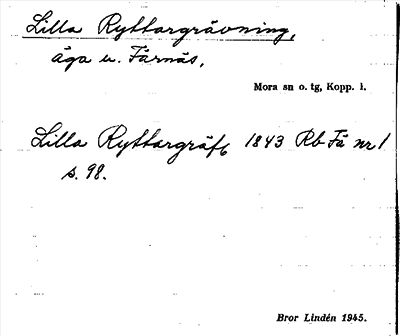 Lilla Ryttargrävning,
äga u. Färnäs,
Mora sn o. tg, Kopp. l.
Lilla Ryttargräf 1843 Rb Fä nr 1
s. 98.
Bror Lindén 1945.